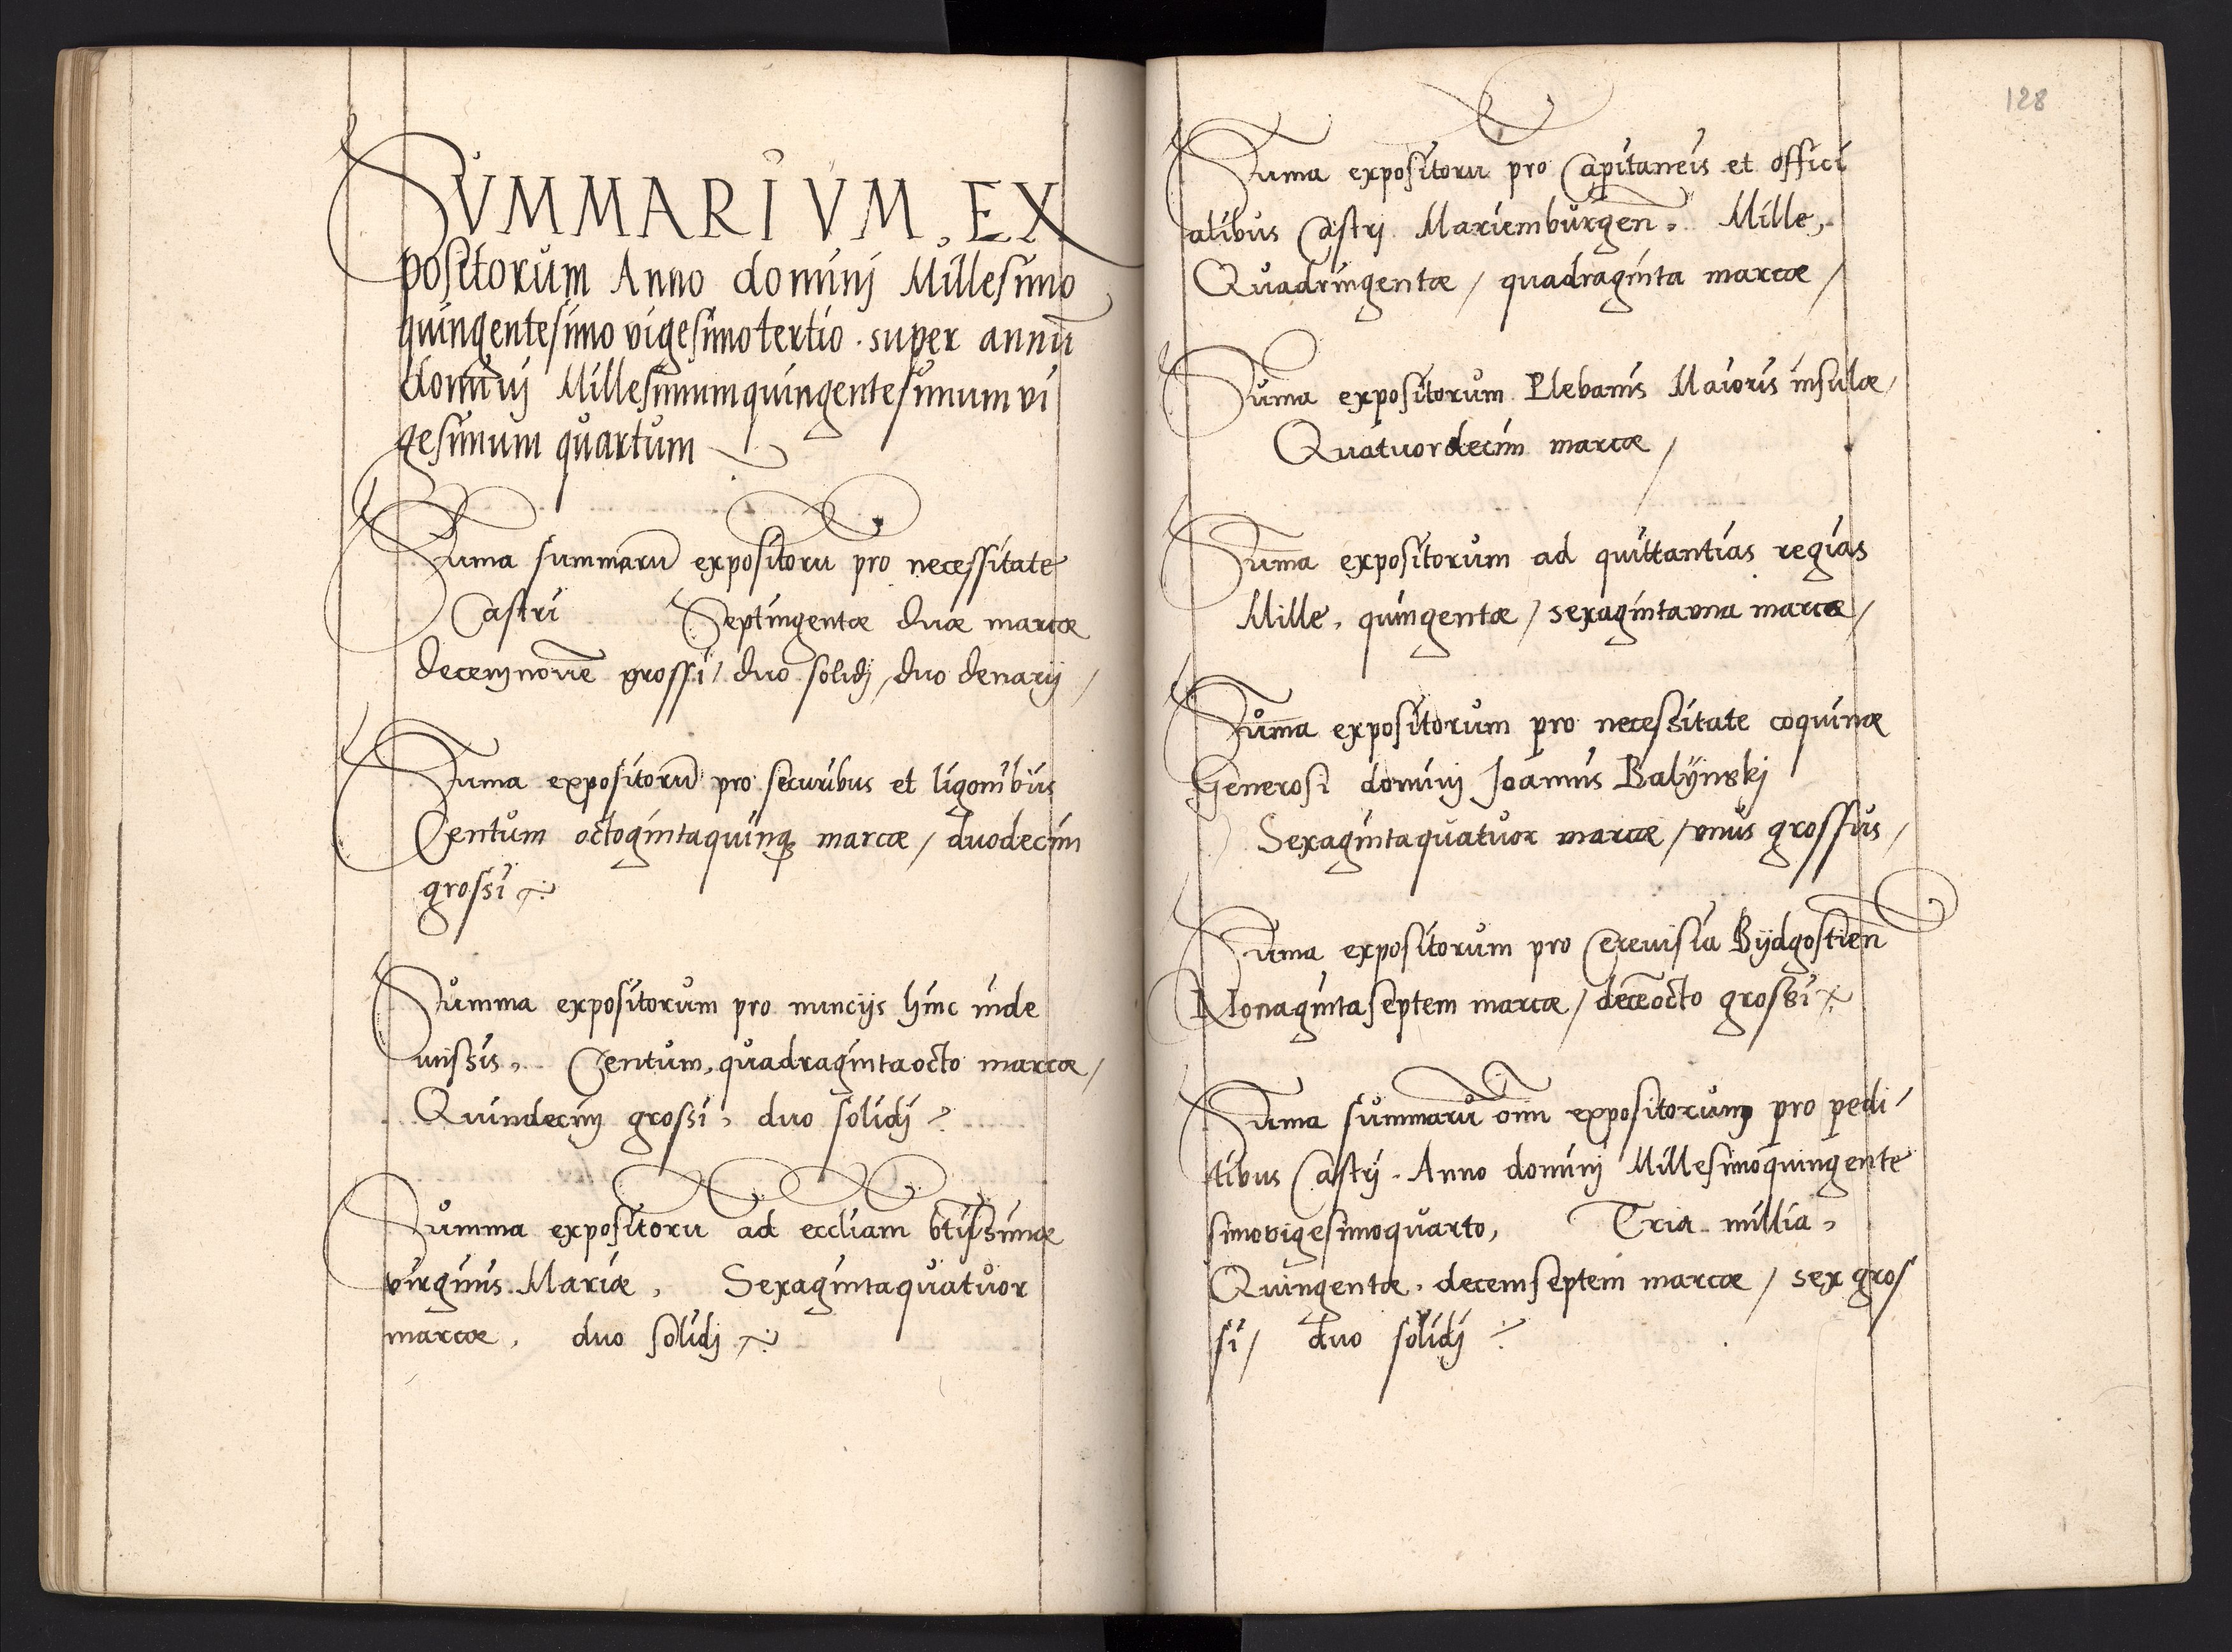 SVMMARIVM, EX
positorum Anno dominj Millesimo
quingentesimo vigesimotertio. super annū
dominij Millesimumquingentesimum vi
gesimum quartum
Suma summarū expositorū pro necessitate
Castri Septingentæ duæ marcæ
decemnouē grossi / duo solidj, duo denarij /
Suma expositorū pro securibus et ligonibus
Centum octogintaquinq; marcæ / duodecim
grossi
Summa expositorum pro nuncijs hinc inde
missis, Centum, quadragintaocto marcæ /
Quindecim grossi, duo solidj
Summa expositorū ad eccliam btissimæ
virginis Mariæ, Sexagintaquatuor
marcæ, duo solidj
128
Suma expositorū pro Capitaneis et offici
alibus Castrj Mariemburgeñ. Mille,
Quadringentæ / quadraginta marcæ /
Suma expositorum Plebanis Maioris insulæ /
Quatuordecim marcæ /
Sum̄a expositorum ad quittantias regias
Mille, quingentæ / sexagintavna marcæ /
Sum̄a expositorum pro necessitate coquinæ
Generosi dominj Joannis Balÿnskj
Sexagintaquatuor marcæ / vnus grossus /
Suma expositorum pro Cereuisia Bÿdgostieñ
Nonagintaseptem marcæ / decēocto grossi
Suma summarū om̄i expositorum pro pedi
tibus Castrj. Anno dominj Millesimoquingente
simovigesimoquarto, Tria millia,
Quingentæ, decemseptem marcæ / sex gros
si / duo solidj